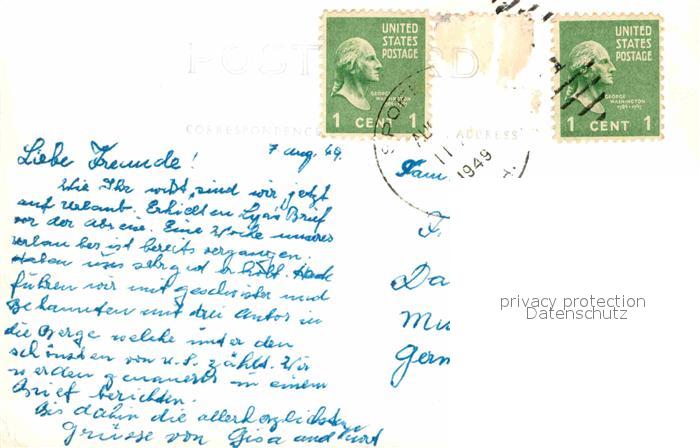 POST CARD
CORRESPONDENCE
ADDRESS
UNITED STATES POSTAGE
GEORGE WASHINGTON
1 CENT 1
UNITED STATES POSTAGE
GEORGE WASHINGTON
1 CENT 1
SPOK
11
1949
7 Aug. 49.
Liebe Freunde!
Wie Ihr wißt, sind wir jetzt
auf Urlaub. Erhielten Brief
vor der Abreise. Eine Woche unseres
Urlaubes ist bereits vergangen.
Haben uns sehr gut erholt.
führen wir mit geschwister und
Bekannten mit drei Autos in
die Berge welche unter den
schönsten von U.S. zählt. Wir
werden genauers in einem
Brief berichten.
Bis dahin die allerherzlichsten
Grüsse von Gisa and Kurt
Fam
F
Da
Mu
Germ
privacy protection
Datenschutz